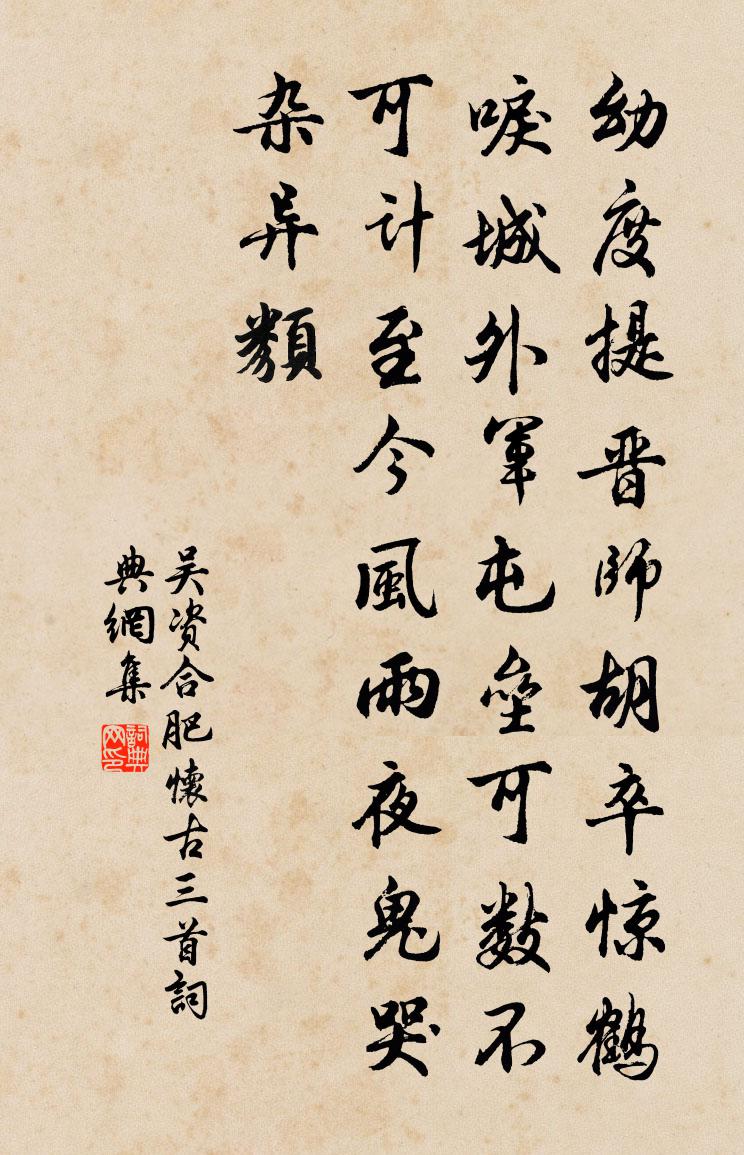 幼度提晋师胡卒惊鹤
唳城外军屯垒可数不
可计至今風雨夜鬼哭
杂异類
吴资合肥懷古三首詞
典網集
詞典网印